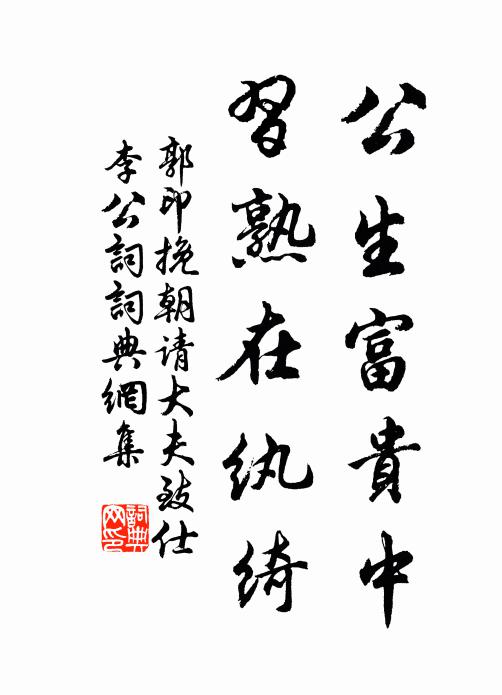 公生富貴中
習熟在纨绮
郭印挽朝请大夫致仕
李公詞詞典網集
詞典網印